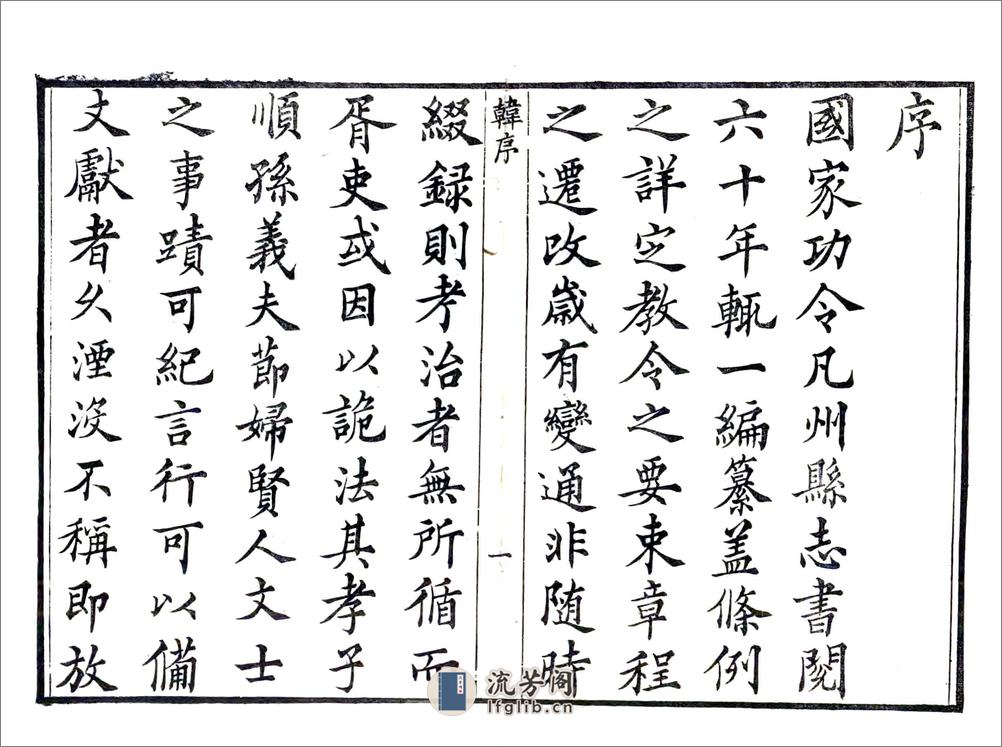 序
國家功令凡州縣志書閱
六十年輒一編纂蓋條例
之詳定教令之要束章程
之遷改歲有變通非随時
韓序
一
綴録則考治者無所循而
胥吏或因以詭法其孝子
順孫義夫節婦賢人文士
之事蹟可紀言行可以備
文獻者久湮沒不稱即放
流芳阁
lfglib.cn